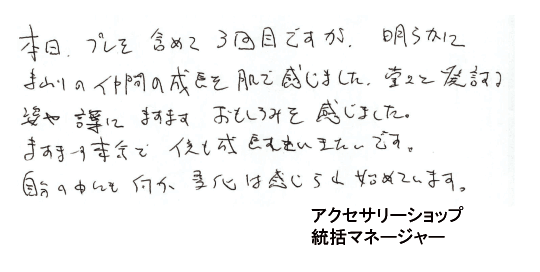 本日、プレを含めて3回目ですが、明らかに
まわりの仲間の成長を肌で感じました。堂々と発言する
姿や に ますます おもしろみを感じました。
ますます で も成長 たいです。
自分の中にも何か変化は感じられ始めています。
アクセサリーショップ
統括マネージャー